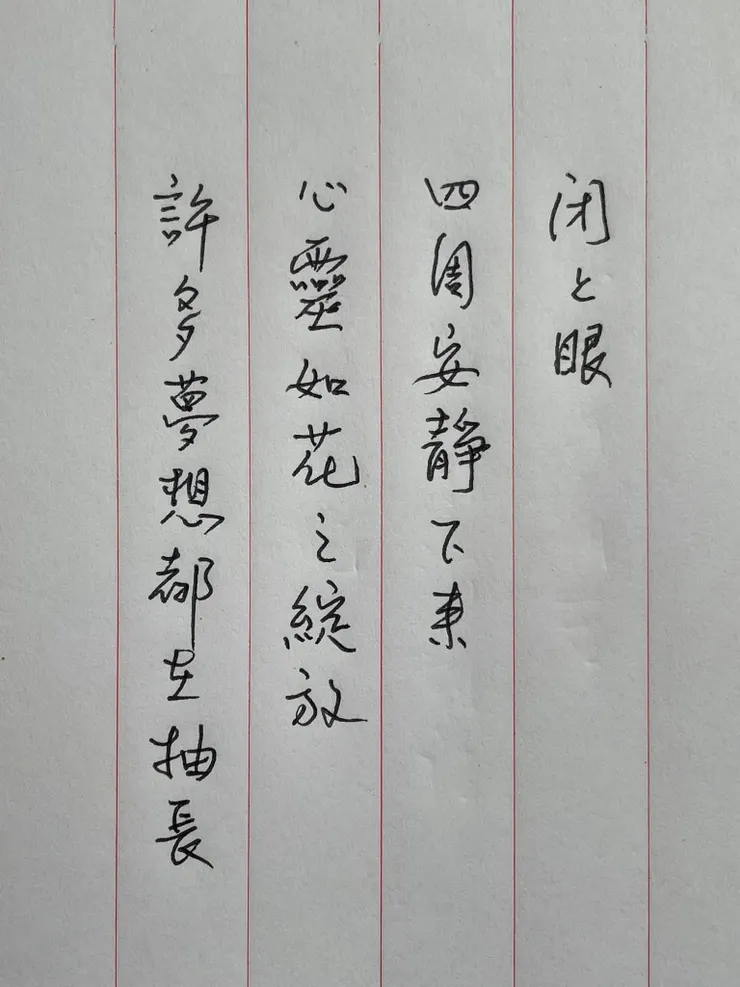 闭上眼
四周安靜下來
心靈如花之綻放
許多夢想都在抽長